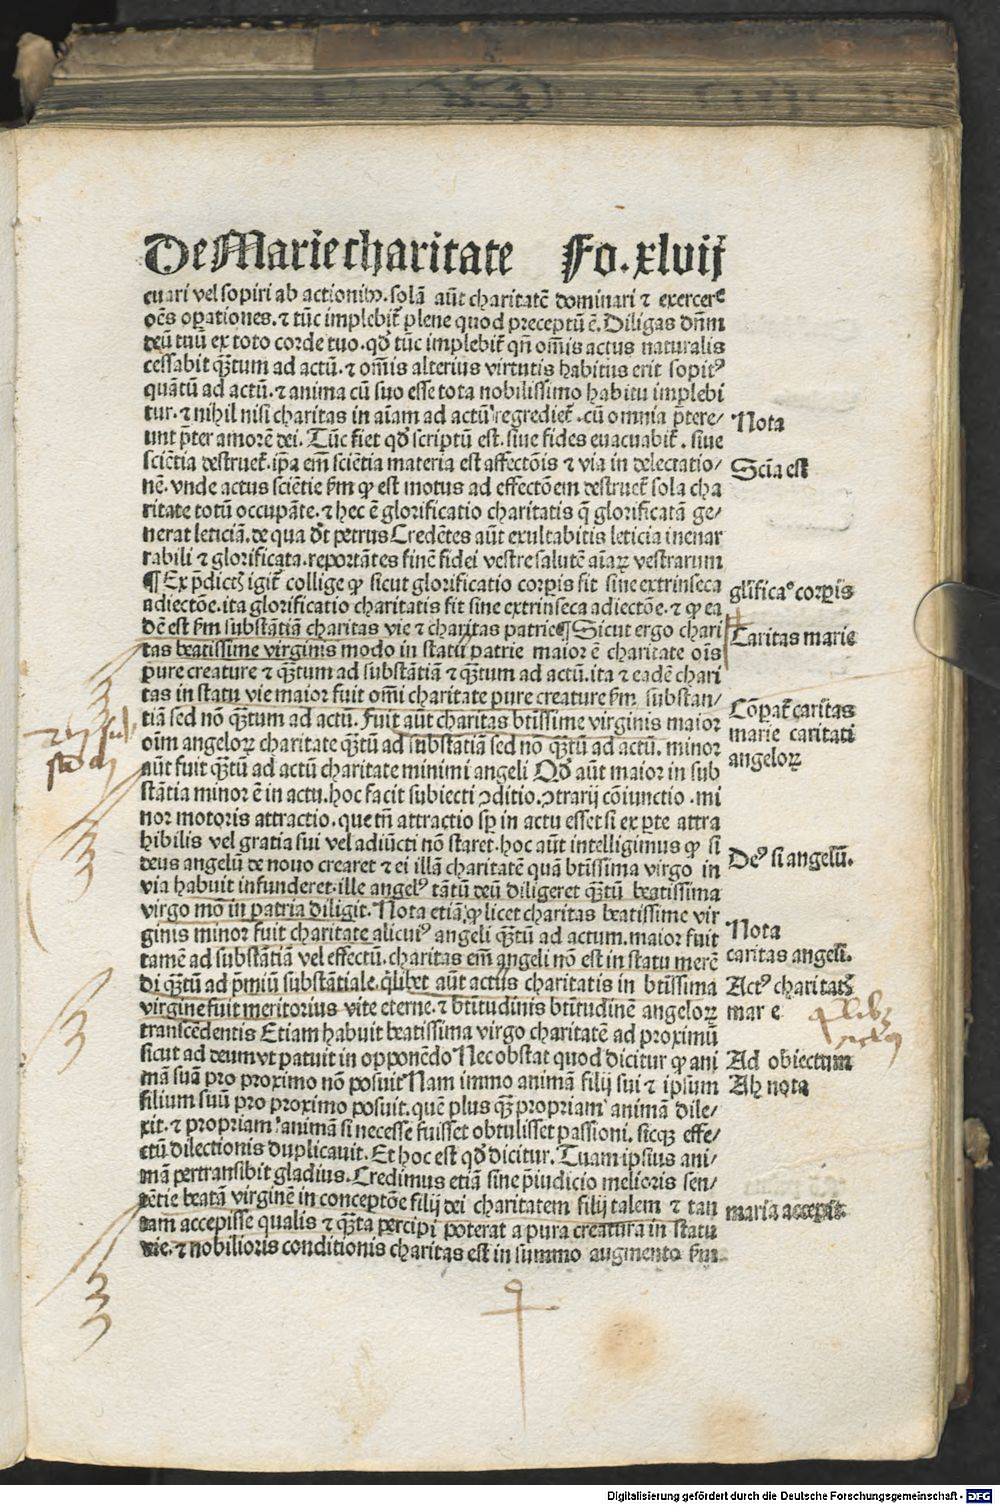 De Marie charitate Fo. xlvij
cuari vel sopiri ab actionibꝰ. solā aūt charitatē dominari ⁊ exercere
oēs oꝑationes. ⁊ tūc implebit᷑ plene quod preceptū ē. Diligas dn̄m
deū tuū ex toto corde tuo. qd̓ tūc implebit᷑ qn̄ om̄is actus naturalis
cessabit qꝫtum ad actū. ⁊ om̄is alterius virtutis habitus erit sopitꝰ
quātū ad actū. ⁊ anima cū suo esse tota nobilissimo habitu implebi
tur. ⁊ nihil nisi charitas in aīam ad actū regrediet᷑. cū omnia p̄tere/
unt p̄ter amorē dei. Tūc fiet qd̓ scriptū est. siue fides euacuabit᷑. siue
sciētia destruet᷑. ip̄a em̄ sciētia materia est affectōis ⁊ via in delectatio/
nē. vnde actus sciētie ẜm ꝙ est motus ad effectōem destruet᷑ sola cha
ritate totū occupāte. ⁊ hec ē glorificatio charitatis q̄ glorificatā ge/
nerat leticiā. de qua dt̄ petrus Credētes aūt exultabitis leticia inenar
rabili ⁊ glorificata. reportātes finē fidei vestre salutē aīaꝝ vestrarum
¶ Ex p̄dictꝭ igit᷑ collige ꝙ sicut glorificatio corꝑis fit sine extrinseca
adiectōe. ita glorificatio charitatis fit sine extrinseca adiectōe. ⁊ ꝙ ea
dē est ẜm substātiā charitas vie ⁊ charitas patrie ¶ Sicut ergo chari
tas beatissime virginis modo in statu patrie maior ē charitate oīs
pure creature ⁊ qꝫtum ad substātiā ⁊ qꝫtum ad actū. ita ⁊ eadē chari
tas in statu vie maior fuit om̄i charitate pure creature ẜm substan/
tiā sed nō qꝫtum ad actū. Fuit aūt charitas btīssime virginis maior
oīm angeloꝝ charitate qꝫtū ad substātiā sed nō qꝫtū ad actū. minor
aūt fuit qꝫtū ad actū charitate minimi angeli Qd̓ aūt maior in sub
stātia minor ē in actu. hoc facit subiecti ꝯditio. ꝯtrarij cōiunctio. mi
nor motoris attractio. que tn̄ attractio sꝑ in actu esset si ex ꝑte attra
hibilis vel gratia sui vel adiūcti nō staret. hoc aūt intelligimus ꝙ si
deus angelū de nouo crearet ⁊ ei illā charitatē quā btīssima virgo in
via habuit infunderet. ille angelꝰ tātū deū diligeret qꝫtū beatissima
virgo mō in patria diligit. Nota etiā ꝙ licet charitas beatissime vir
ginis minor fuit charitate alicuiꝰ angeli qꝫtū ad actum. maior fuit
tamē ad substātiā vel effectū. charitas em̄ angeli nō est in statu merē
di qꝫtū ad p̄miū substātiale. qͥlibet aūt actus charitatis in btīssima
virgine fuit meritorius vite eterne. ⁊ btītudinis btītudinē angeloꝝ
transcēdentis Etiam habuit beatissima virgo charitatē ad proximū
sicut ad deum vt patuit in opponēdo Nec obstat quod dicitur ꝙ ani
mā suā pro proximo nō posuit Nam immo animā filij sui ⁊ ipsum
filium suū pro proximo posuit. quē plus qꝫ propriam animā dile/
xit. ⁊ propriam animā si necesse fuisset obtulisset passioni. sicqꝫ effe/
ctū dilectionis duplicauit. Et hoc est qd̓ dicitur. Tuam ipsius ani/
mā pertransibit gladius. Credimus etiā sine p̄iudicio melioris sen/
tētie beatā virginē in conceptōe filij dei charitatem filij talem ⁊ tan
tam accepisse qualis ⁊ qꝫta percipi poterat a pura creatura in statu
vie. ⁊ nobilioris conditionis charitas est in summo augmento ẜm
Nota
Scīa est
gl̄ificaᵒ corꝑis
Caritas marie
Cōꝑat᷑ caritas
marie caritati
angeloꝝ
Deꝰ si angelū.
Nota
caritas angeli.
Actꝰ charitatꝭ
mar e
Ad obiectum
Aliꝫ nota
maria accepit